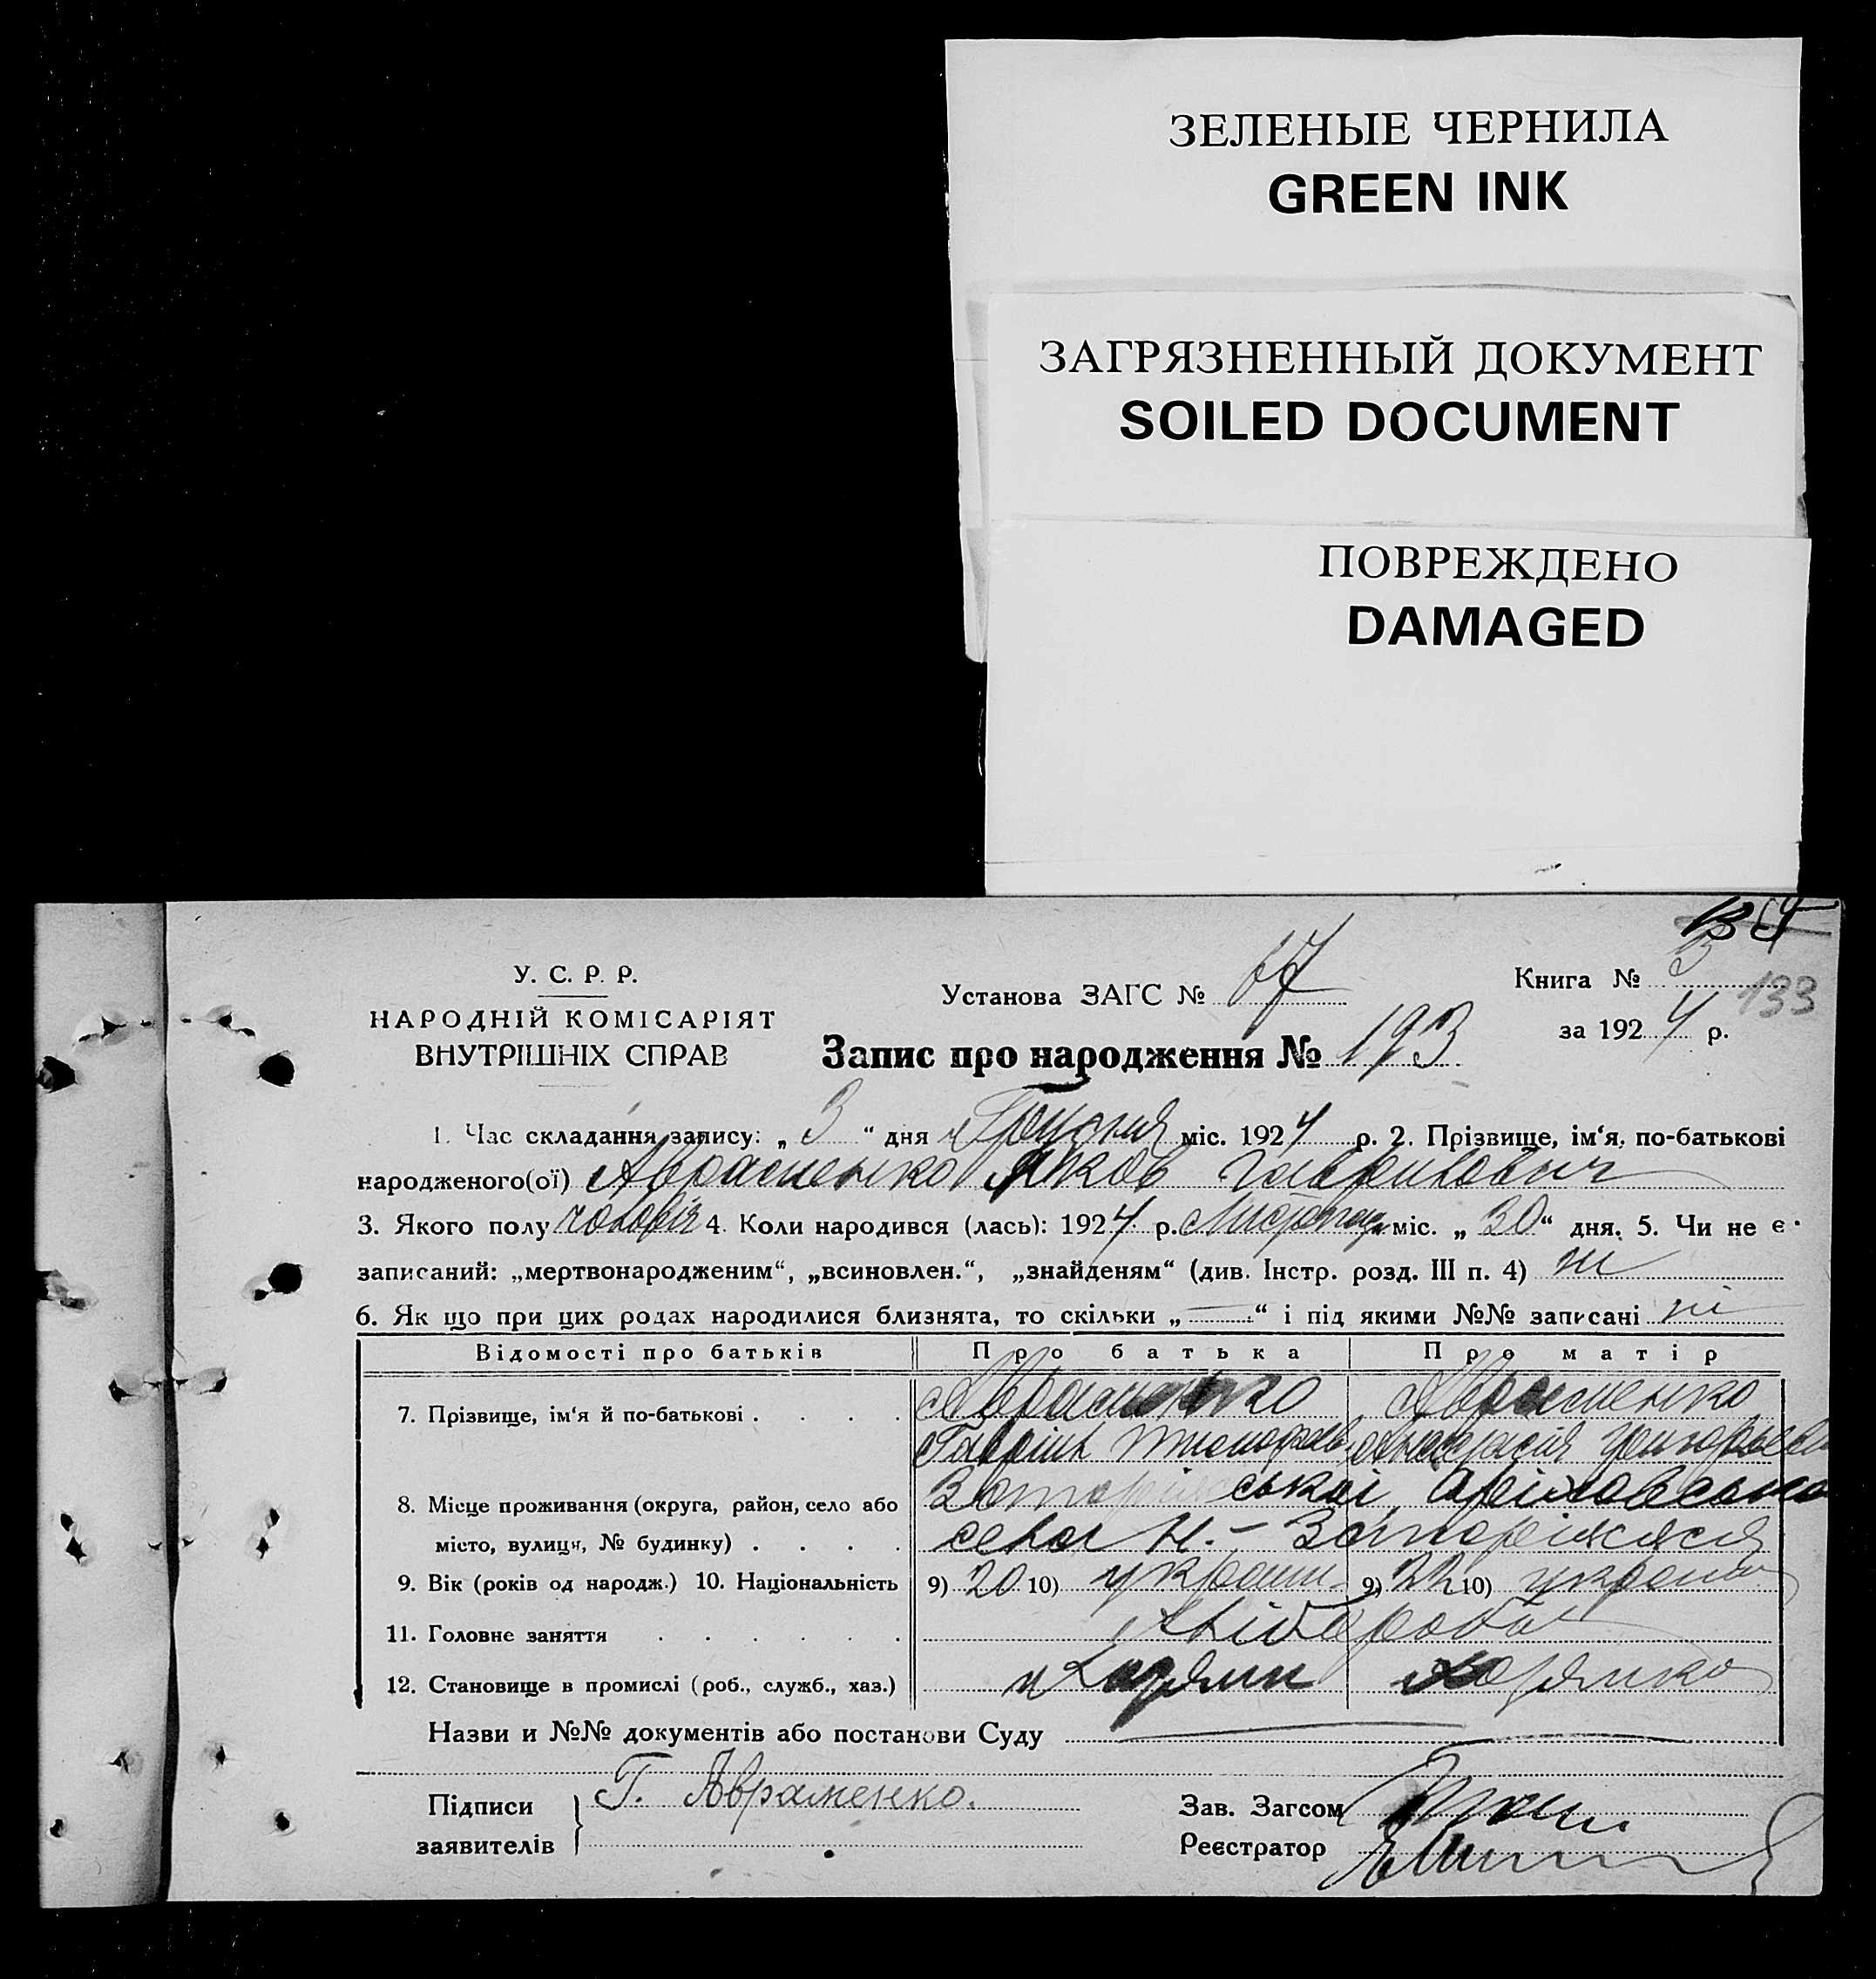 ЗЕЛЕНЫЕ ЧЕРНИЛА
GREEN INK
ЗАГРЯЗНЕННЫЙ ДОКУМЕНТ
SOILED DOCUMENT
ПОВРЕЖДЕНО
DAMAGED
133
У. С. Р. Р.
НАРОДНІЙ КОМІСАРІЯТ
ВНУТРІШНІХ СПРАВ
Установа ЗАГС № 67
Книга № 3
за 1924 р.
Запис про народження № 193
1. Час складання запису: „ 3 “ дня Грудня міс. 1924 р. 2. Прізвище, ім‘я, по-батькові
народженого(ої) Авраменко Яков Гаврилович
3. Якого полу чоловіч 4. Коли народився (лась): 1924 р. Листопад міс. „ 30 “ дня. 5. Чи не є
записаний: „мертвонародженим“, „всиновлен.“, „знайденям“ (див. Інстр. розд. III п. 4) ні
6. Як що при цих родах народилися близнята, то скільки „ — “ і під якими №№ записані ні
Відомості про батьків Про батька Про матір
7. Прізвище, ім‘я й по-батькові Авраменко Авраменко
Гавріїл Анастасія
8. Місце проживання (округа, район, село або
місто, вулиця, № будинку) села Н.-Запоріжжя
9. Вік (років од народж.) 10. Національність 9) 20 10) україн 9) 22 10) україн
11. Головне заняття Хлібороб
12. Становище в промислі (роб., служб., хаз.) Хазяин Хазяйка
Назви и №№ документів або постанови Суду
Підписи
заявителів
Г. Авраменко.
Зав. Загсом
Реєстратор